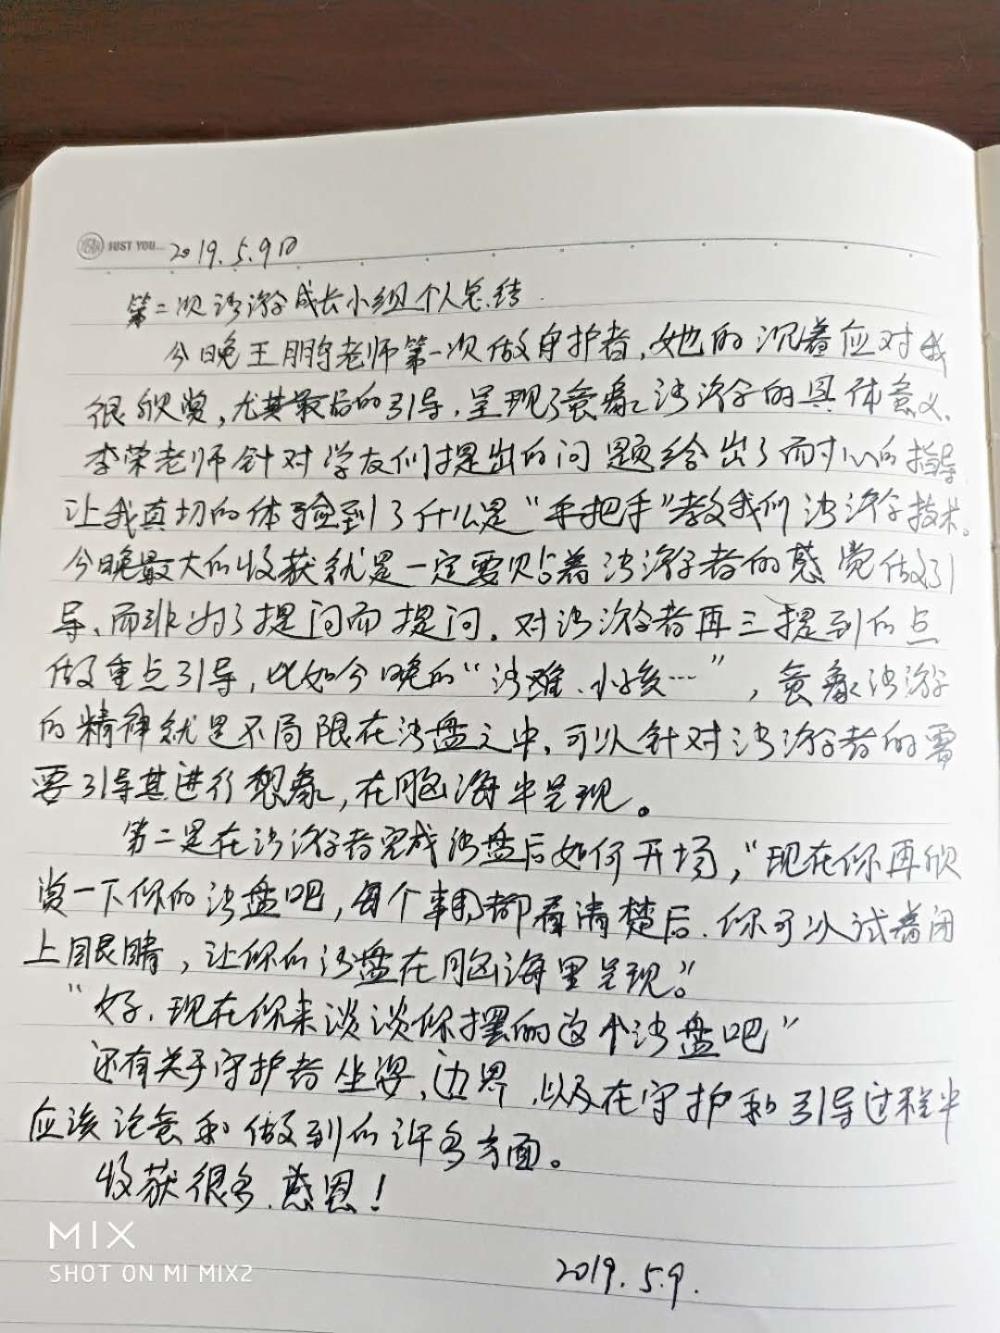 JUST YOU... 2019.5.9日
第二次沙游成长小组个人总结
今晚王鹏老师第一次做守护者,她的沉着应对我
很欣赏,尤其最后的引导,呈现了意象沙游的具体意义。
李荣老师针对学友们提出的问题给出了耐心的指导,
让我真切的体验到了什么是“手把手”教我们沙游技术。
今晚最大的收获就是一定要贴着沙游者的感觉做引
导、而非为了提问而提问。对沙游者再三提到的点
做重点引导,比如今晚的“沙难、小孩…”,意象沙游
的精神就是不局限在沙盘之中,可以针对沙游者的需
要引导其进行想象,在脑海中呈现。
第二是在沙游者完成沙盘后如何开场,“现在你再欣
赏一下你的沙盘吧,每个角都看清楚后.你可以试着闭
上眼睛,让你的沙盘在脑海里呈现。”
“好.现在你来谈谈你摆的这个沙盘吧”
还有关于守护者坐姿、边界,以及在守护和引导过程中
应该注意和做到的许多方面。
收获很多.感恩!
2019.5.9.
MIX
SHOT ON MI MIX2